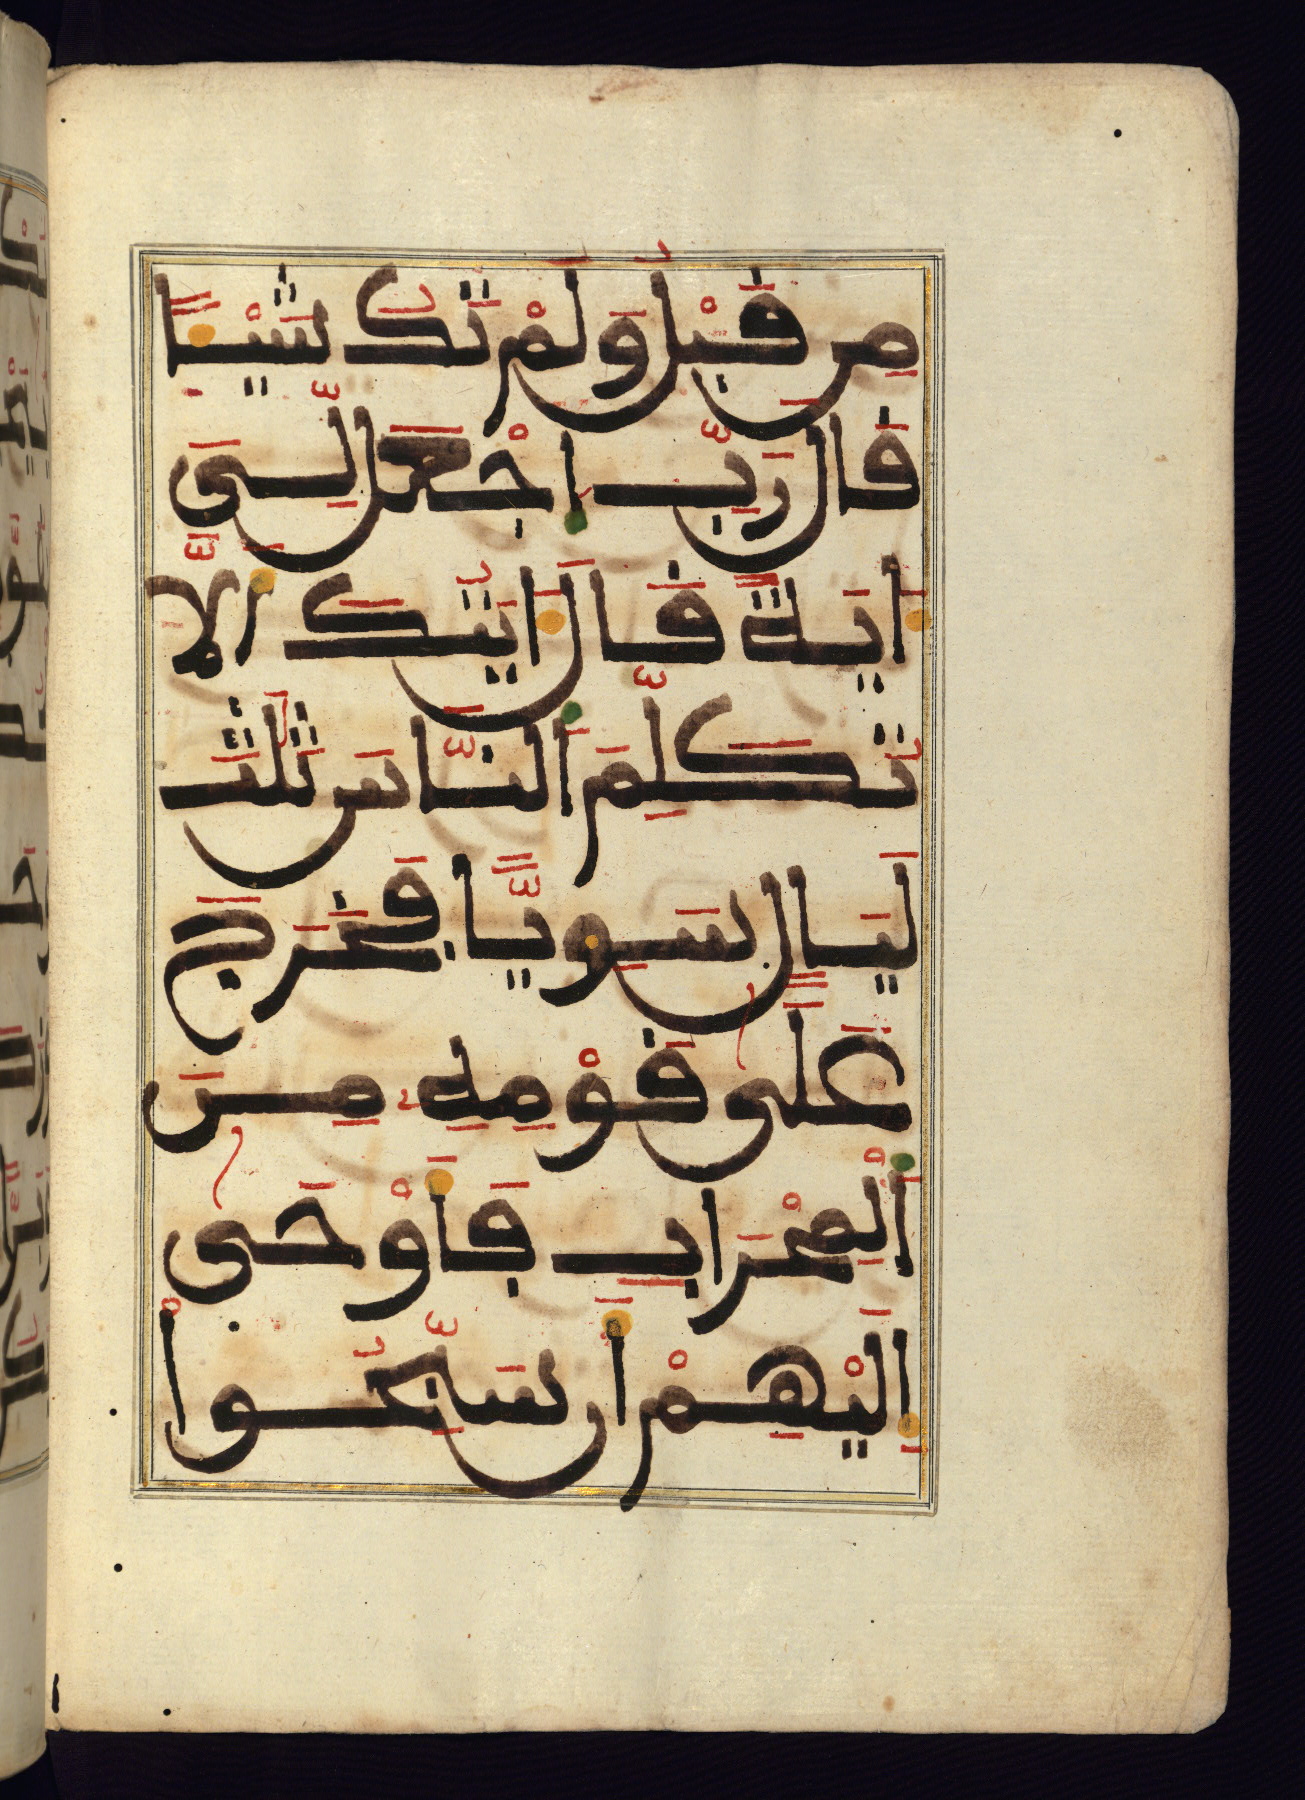 مِن قَبْلُ وَلَمْ تَكُ شَيْـًٔا
قَالَ رَبِّ اَ۪جْعَل لِّىَ
ءَايَةً قَالَ ءَايَتُكَ أَلَّا
تُكَلِّمَ اَ۬لنَّاسَ ثَلَٰثَ
لَيَالٍ سَوِيًّا فَخَرَجَ
عَلَىٰ قَوْمِهِ مِنَ
اَ۬لْمِحْرَابِ فَأَوْحَىٰ
إِلَيْهِمْ أَن سَبِّحُوا